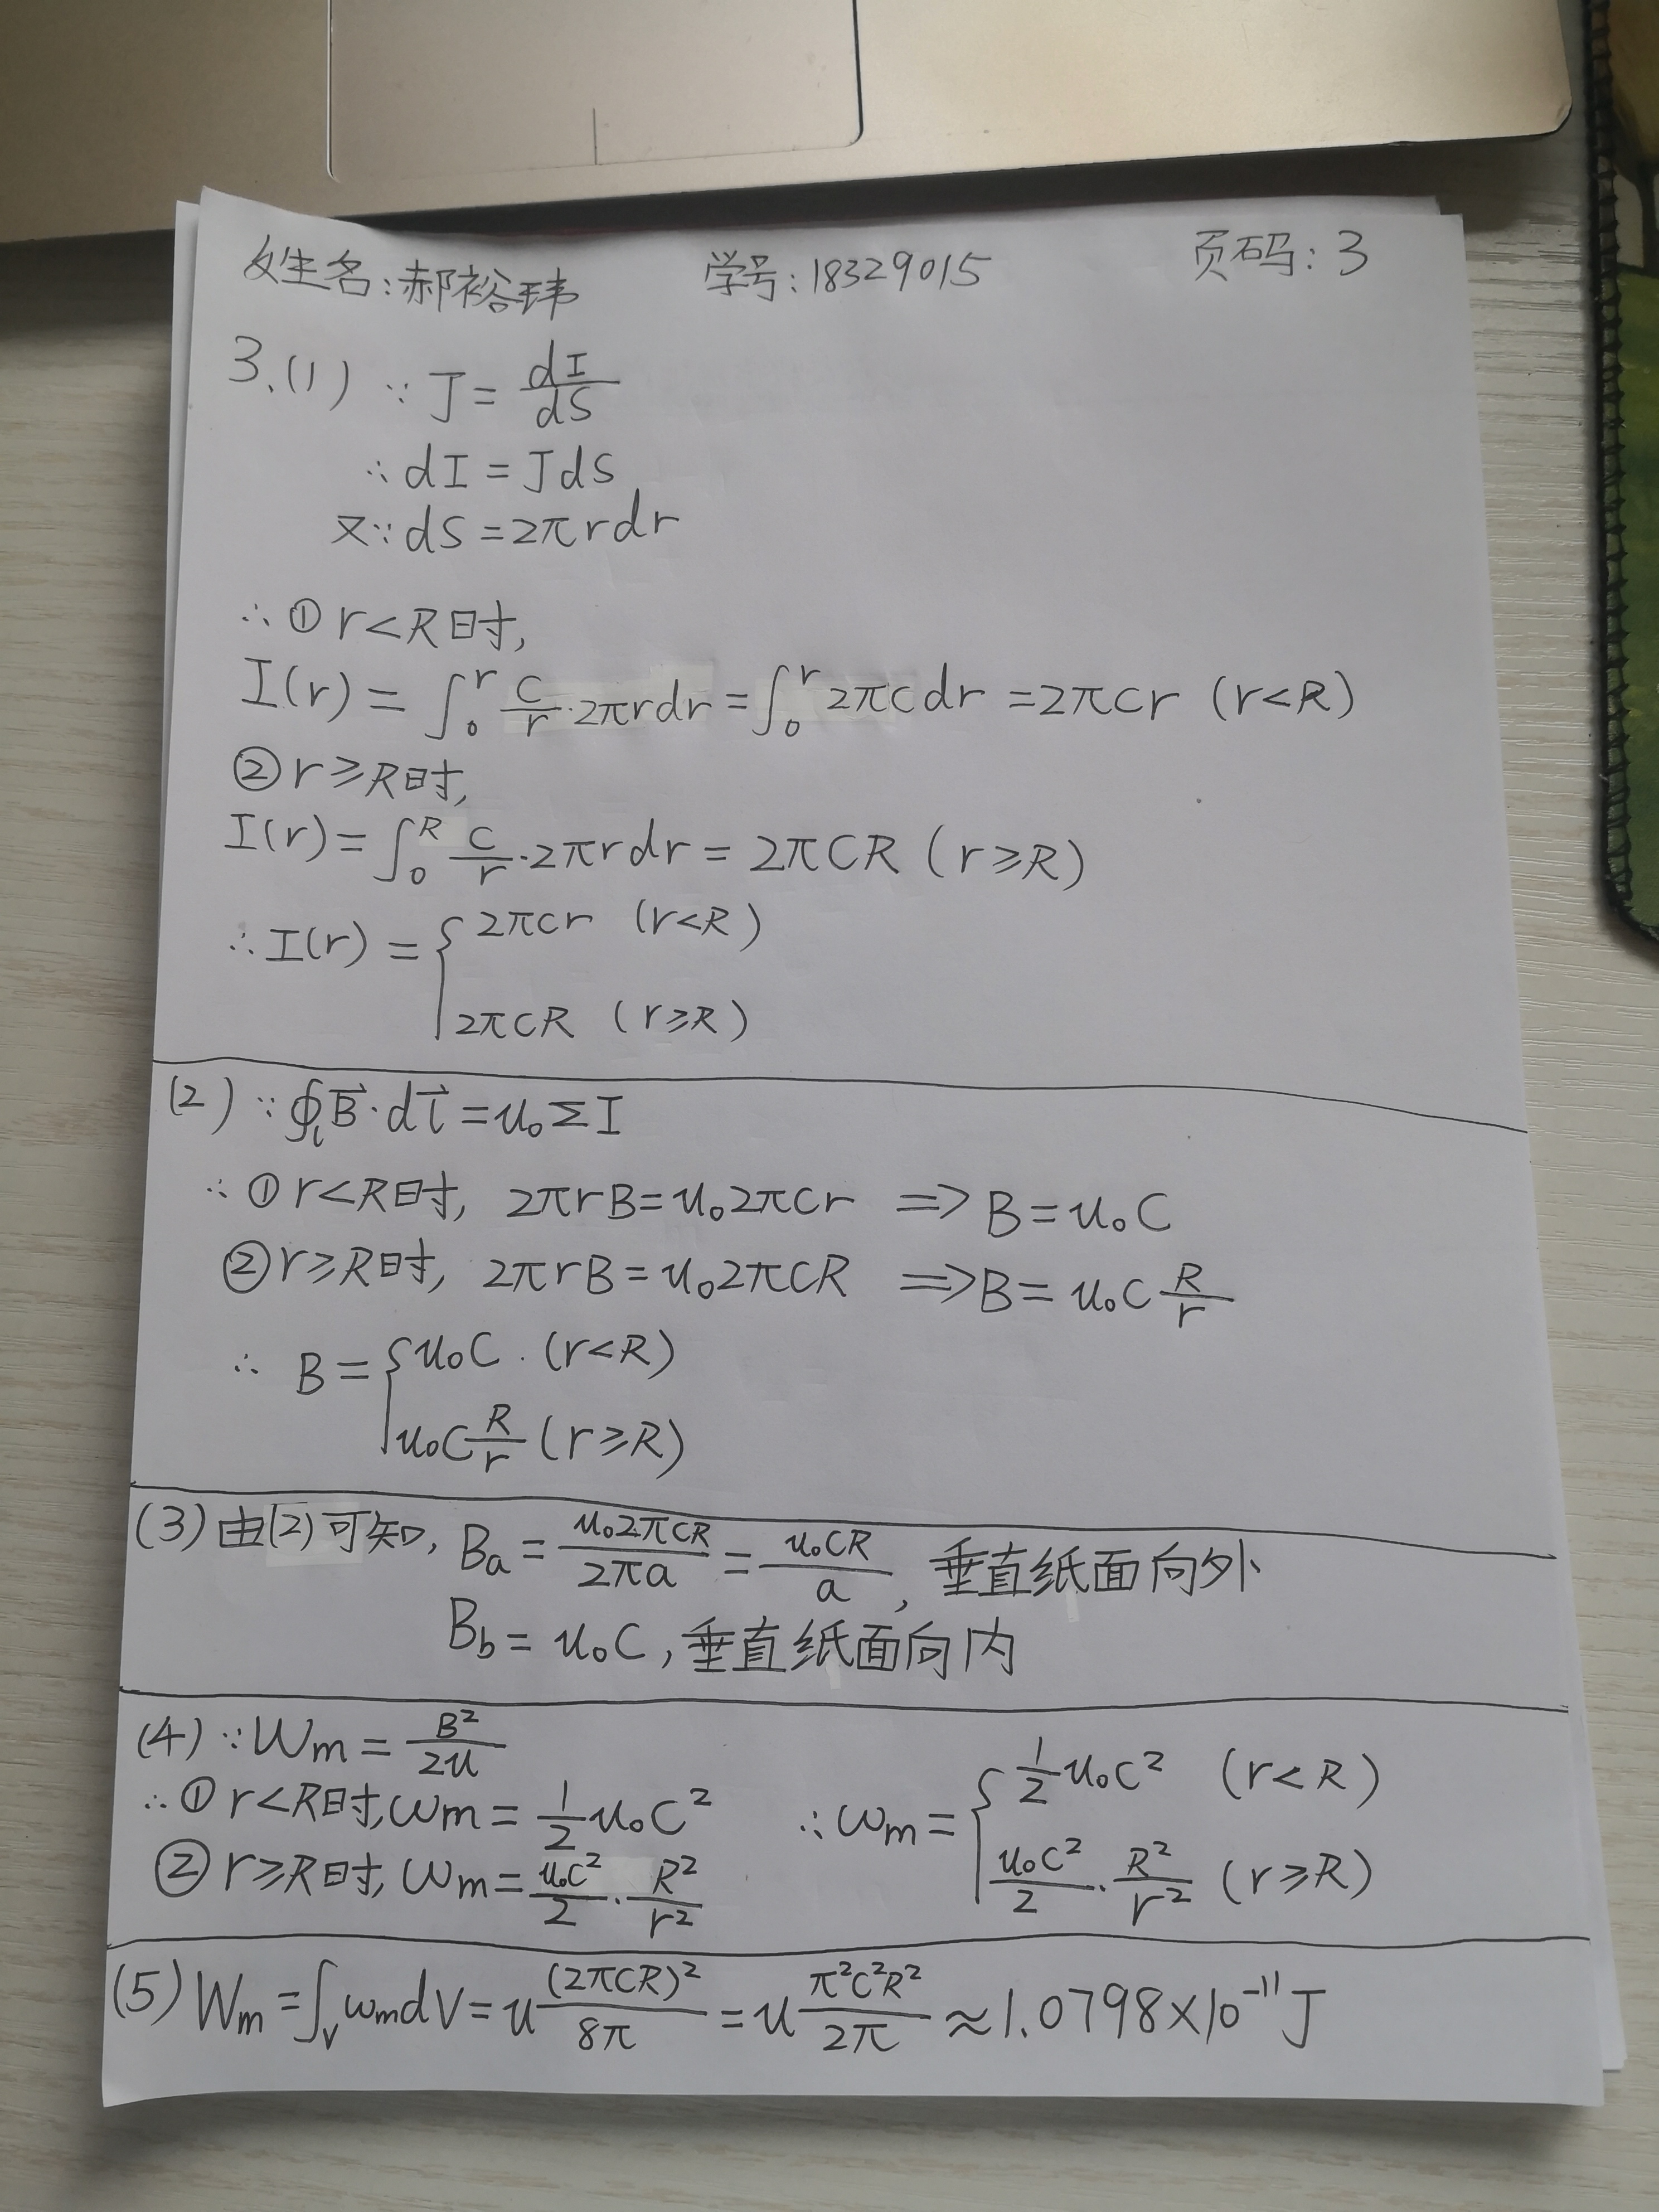 姓名:郝裕玮 学号:18329015 页码:3
3.(1) ∵ J = dI/dS
∴ dI = JdS
又∵ dS = 2πrdr
∴ ① r<R时,
I(r) = ∫₀ʳ C/r · 2πrdr = ∫₀ʳ 2πCdr = 2πCr (r<R)
② r≥R时,
I(r) = ∫₀ᴿ C/r · 2πrdr = 2πCR (r≥R)
∴ I(r) = { 2πCr (r<R)
2πCR (r≥R)
(2) ∵ ∮ₗ B⃗·dl⃗ = u₀ΣI
∴ ① r<R时, 2πrB = u₀2πCr ⇒ B = u₀C
② r≥R时, 2πrB = u₀2πCR ⇒ B = u₀C R/r
∴ B = { u₀C . (r<R)
u₀C R/r (r≥R)
(3) 由(2)可知, Ba = u₀2πCR/2πa = u₀CR/a , 垂直纸面向外
Bb = u₀C, 垂直纸面向内
(4) ∵ Wm = B²/2u
∴ ① r<R时, wm = 1/2 u₀C²
② r≥R时, wm = u₀C²/2 · R²/r²
∴ wm = { 1/2 u₀C² (r<R)
u₀C²/2 · R²/r² (r≥R)
(5) Wm = ∫ᵥ wmdV = u (2πCR)²/8π = u π²C²R²/2π ≈ 1.0798×10⁻¹¹J